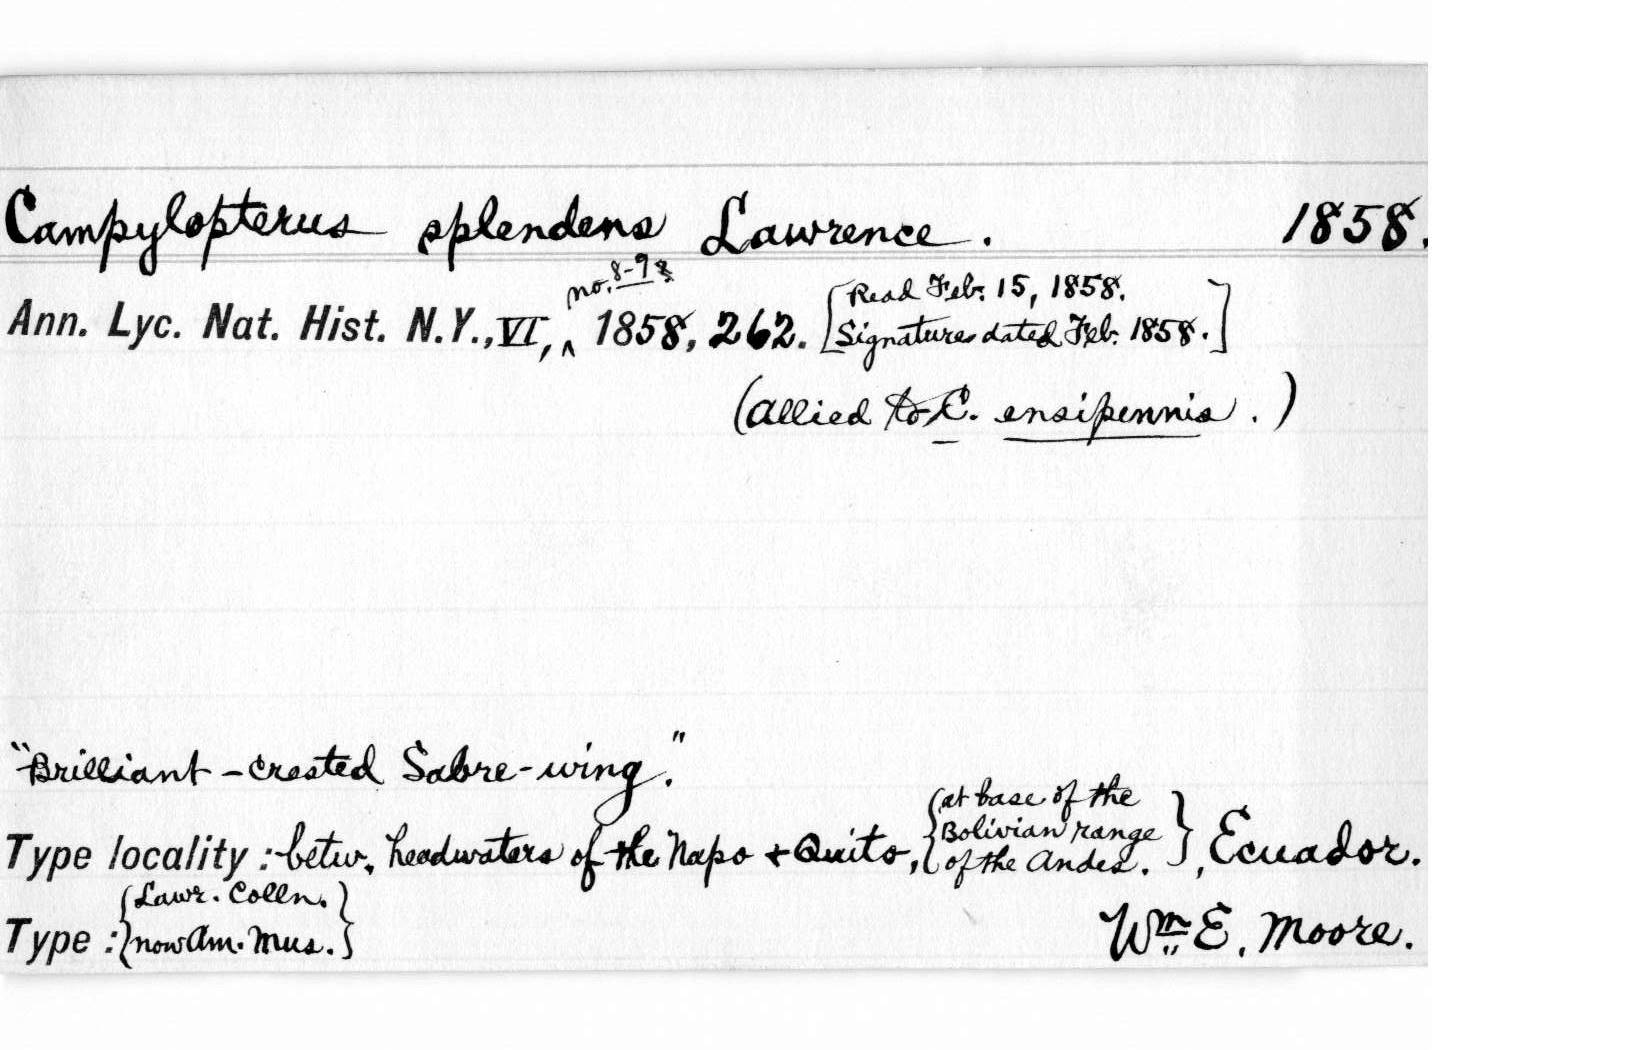 Campylopterus splendens Lawrence. 1858.
no. 8-9
Ann. Lyc. Nat. Hist. N.Y., VI, ‸ 1858, 262. [Read Feb. 15, 1858.
Signatures dated Feb. 1858.]
(Allied to C. ensipennis.)
"Brilliant-crested Sabre-wing."
Type locality: betw. headwaters of the Napo + Quito, {at base of the
Bolivian range
of the Andes.}, Ecuador.
Type: {Lawr. Colln.
now Am. Mus.}
Wm E. Moore.